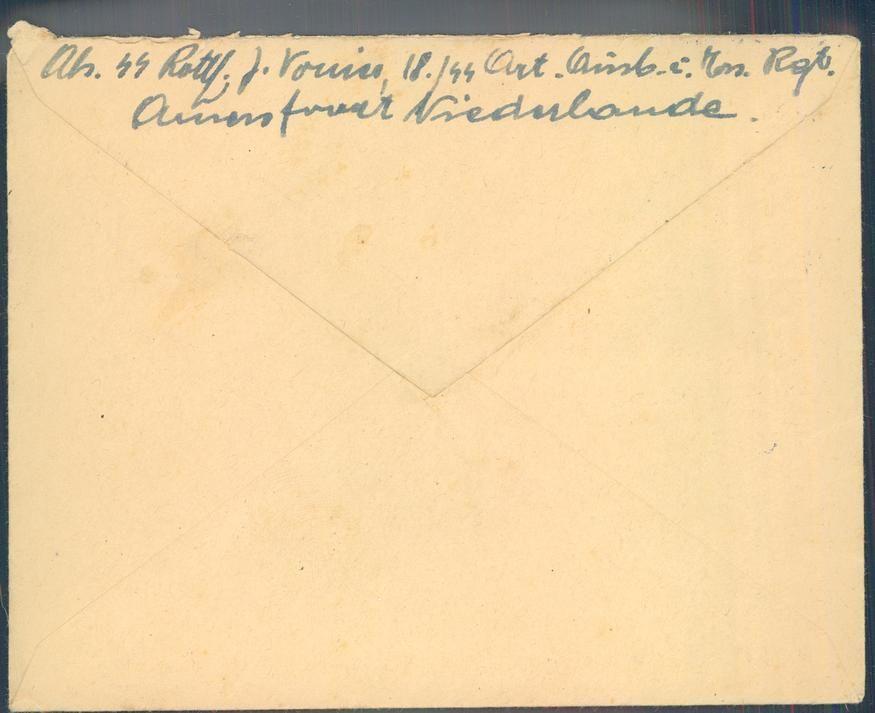 Abs. SS Rottf. J. 18./SS Art. Ausb. u. Ers. Rgt.
Amersfoort Niederlande.